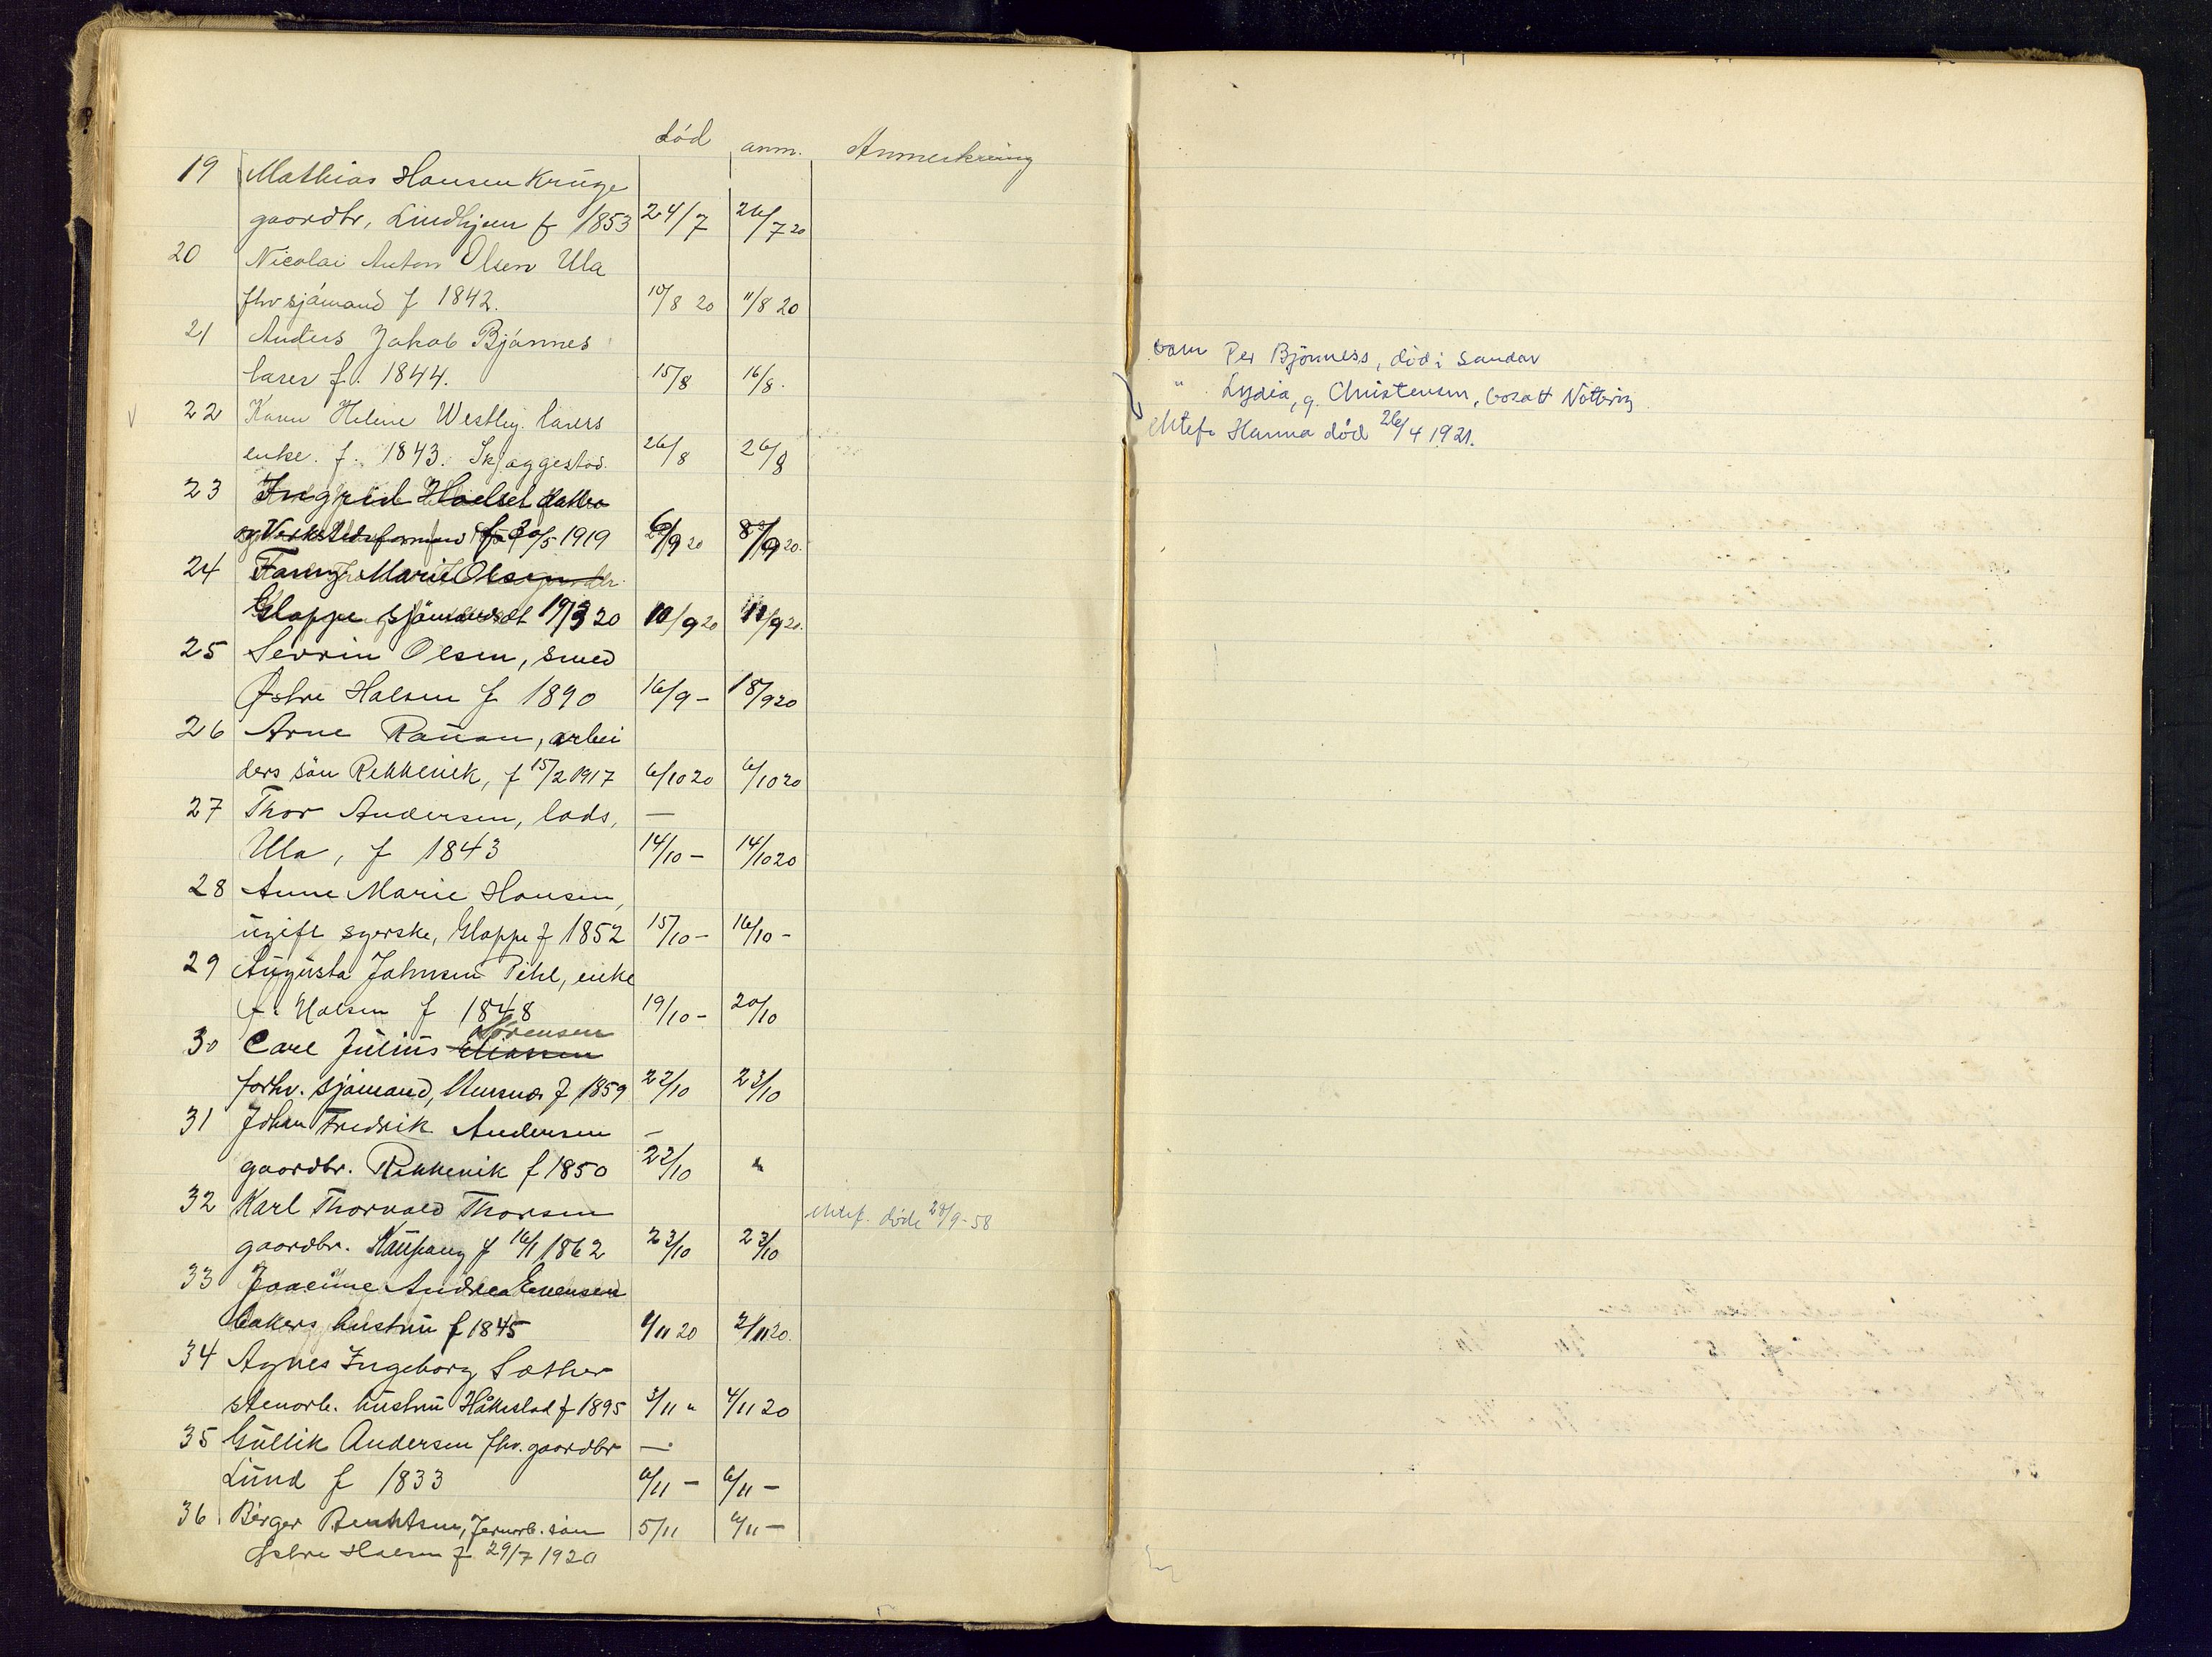 död anm. Anmerkning
19 Mathias Hansen Krüge
gaardbr, Lindhjem f 1853 24/7 26/7 20
20 Nicolai Anton Olsen Ula
fhv sjömand f 1842. 10/8 20 11/8 20
21 Anders Jakob Bjönnes
f. 1844. 15/8 16/8.
22 Karen Helene Westby.
enke. f. 1843. Skjaggestad. 26/8 26/8
23 Ingrid Hoelsel datter
av Verkstedsforman f 30/5 1919 6/9 20 8/9 20.
24 Fanny Marie Olsen
Gloppe sjömands dt 19/3 20 10/9 20 11/9 20.
25 Sevrin Olsen, smed
Østre Halsen f 1890 16/9 – 18/9 20
26 Arne Rauan, arbei
ders sön Rekkevik, f 15/2 1917 6/10 20 6/10 20
27 Thor Andersen, lods, —
Ula, f 1843 14/10 – 14/10 20
28 Anne Marie Hansen,
ugift syerske, Gloppe f 1852 15/10 – 16/10 –
29 Augusta Johnsen Pihl, enke
Ø. Halsen f 1848 19/10 – 20/10
Sörensen
30 Carl Julius Eliassen
forhv. sjömand, Stensnes f 1859 22/10 23/10
31 Johan Fredrik Andersen —
gaardbr. Rekkevik f 1850 22/10 "
32 Karl Thorvald Thorsen ektef. döde 28/9-58
gaardbr. Kaupang f 16/1 1862 23/10 23/10
33 Joacime Andrea Evensen
bakers hustru f 1845 1/11 20 2/11 20.
34 Agnes Ingeborg Sæther
stenarb. hustru Håkestad f 1895 3/11 " 4/11 20
35 Gullik Andersen fhv. gaardbr —
Lund f 1833 6/11 – 6/11 –
36 Birger Bentsen, Jernarb. sön 5/11 6/11 –
Østre Halsen f 29/7 1920
barn Per Bjönness, död i Sandar
" Lydia, g. Christensen, bosatt Nötteröy
ektef. Hanna död 26/4 1921.